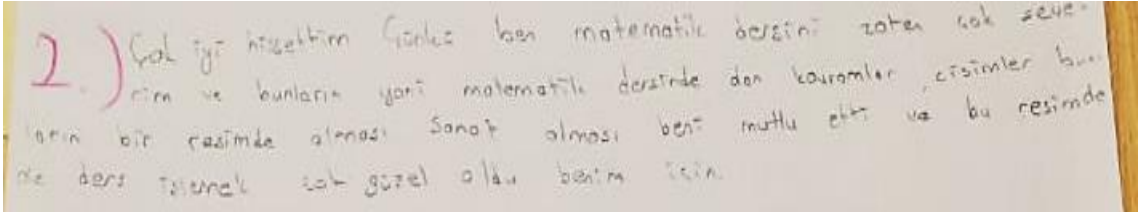 2.) Çok iyi hissettim Çünkü ben matematik dersini zaten çok seve-
rim ve bunların yani matematik dersinde dan kavramlar, cisimler bun-
ların bir resimde olması Sanat olması beni mutlu etti ve bu resimde
de ders işlemek çok güzel oldu benim için.